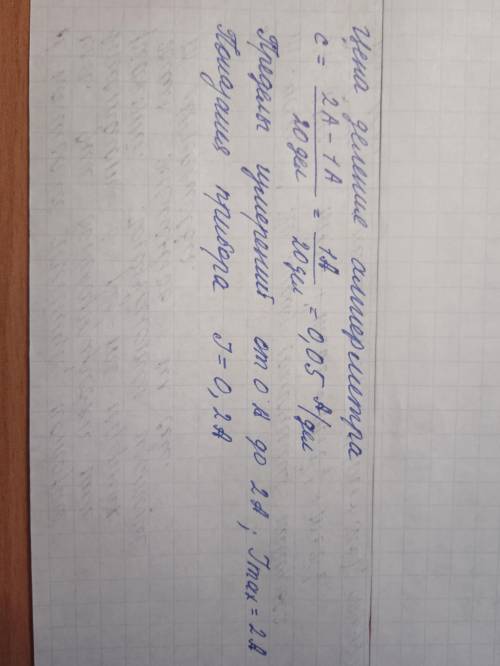 Цена деление амперметра
c = 2А - 1А / 20 дел = 1А / 20 дел = 0,05 А/дел
Пределы измерений от 0 А до 2 А; Imax = 2 А
Показания прибора I = 0,2 А